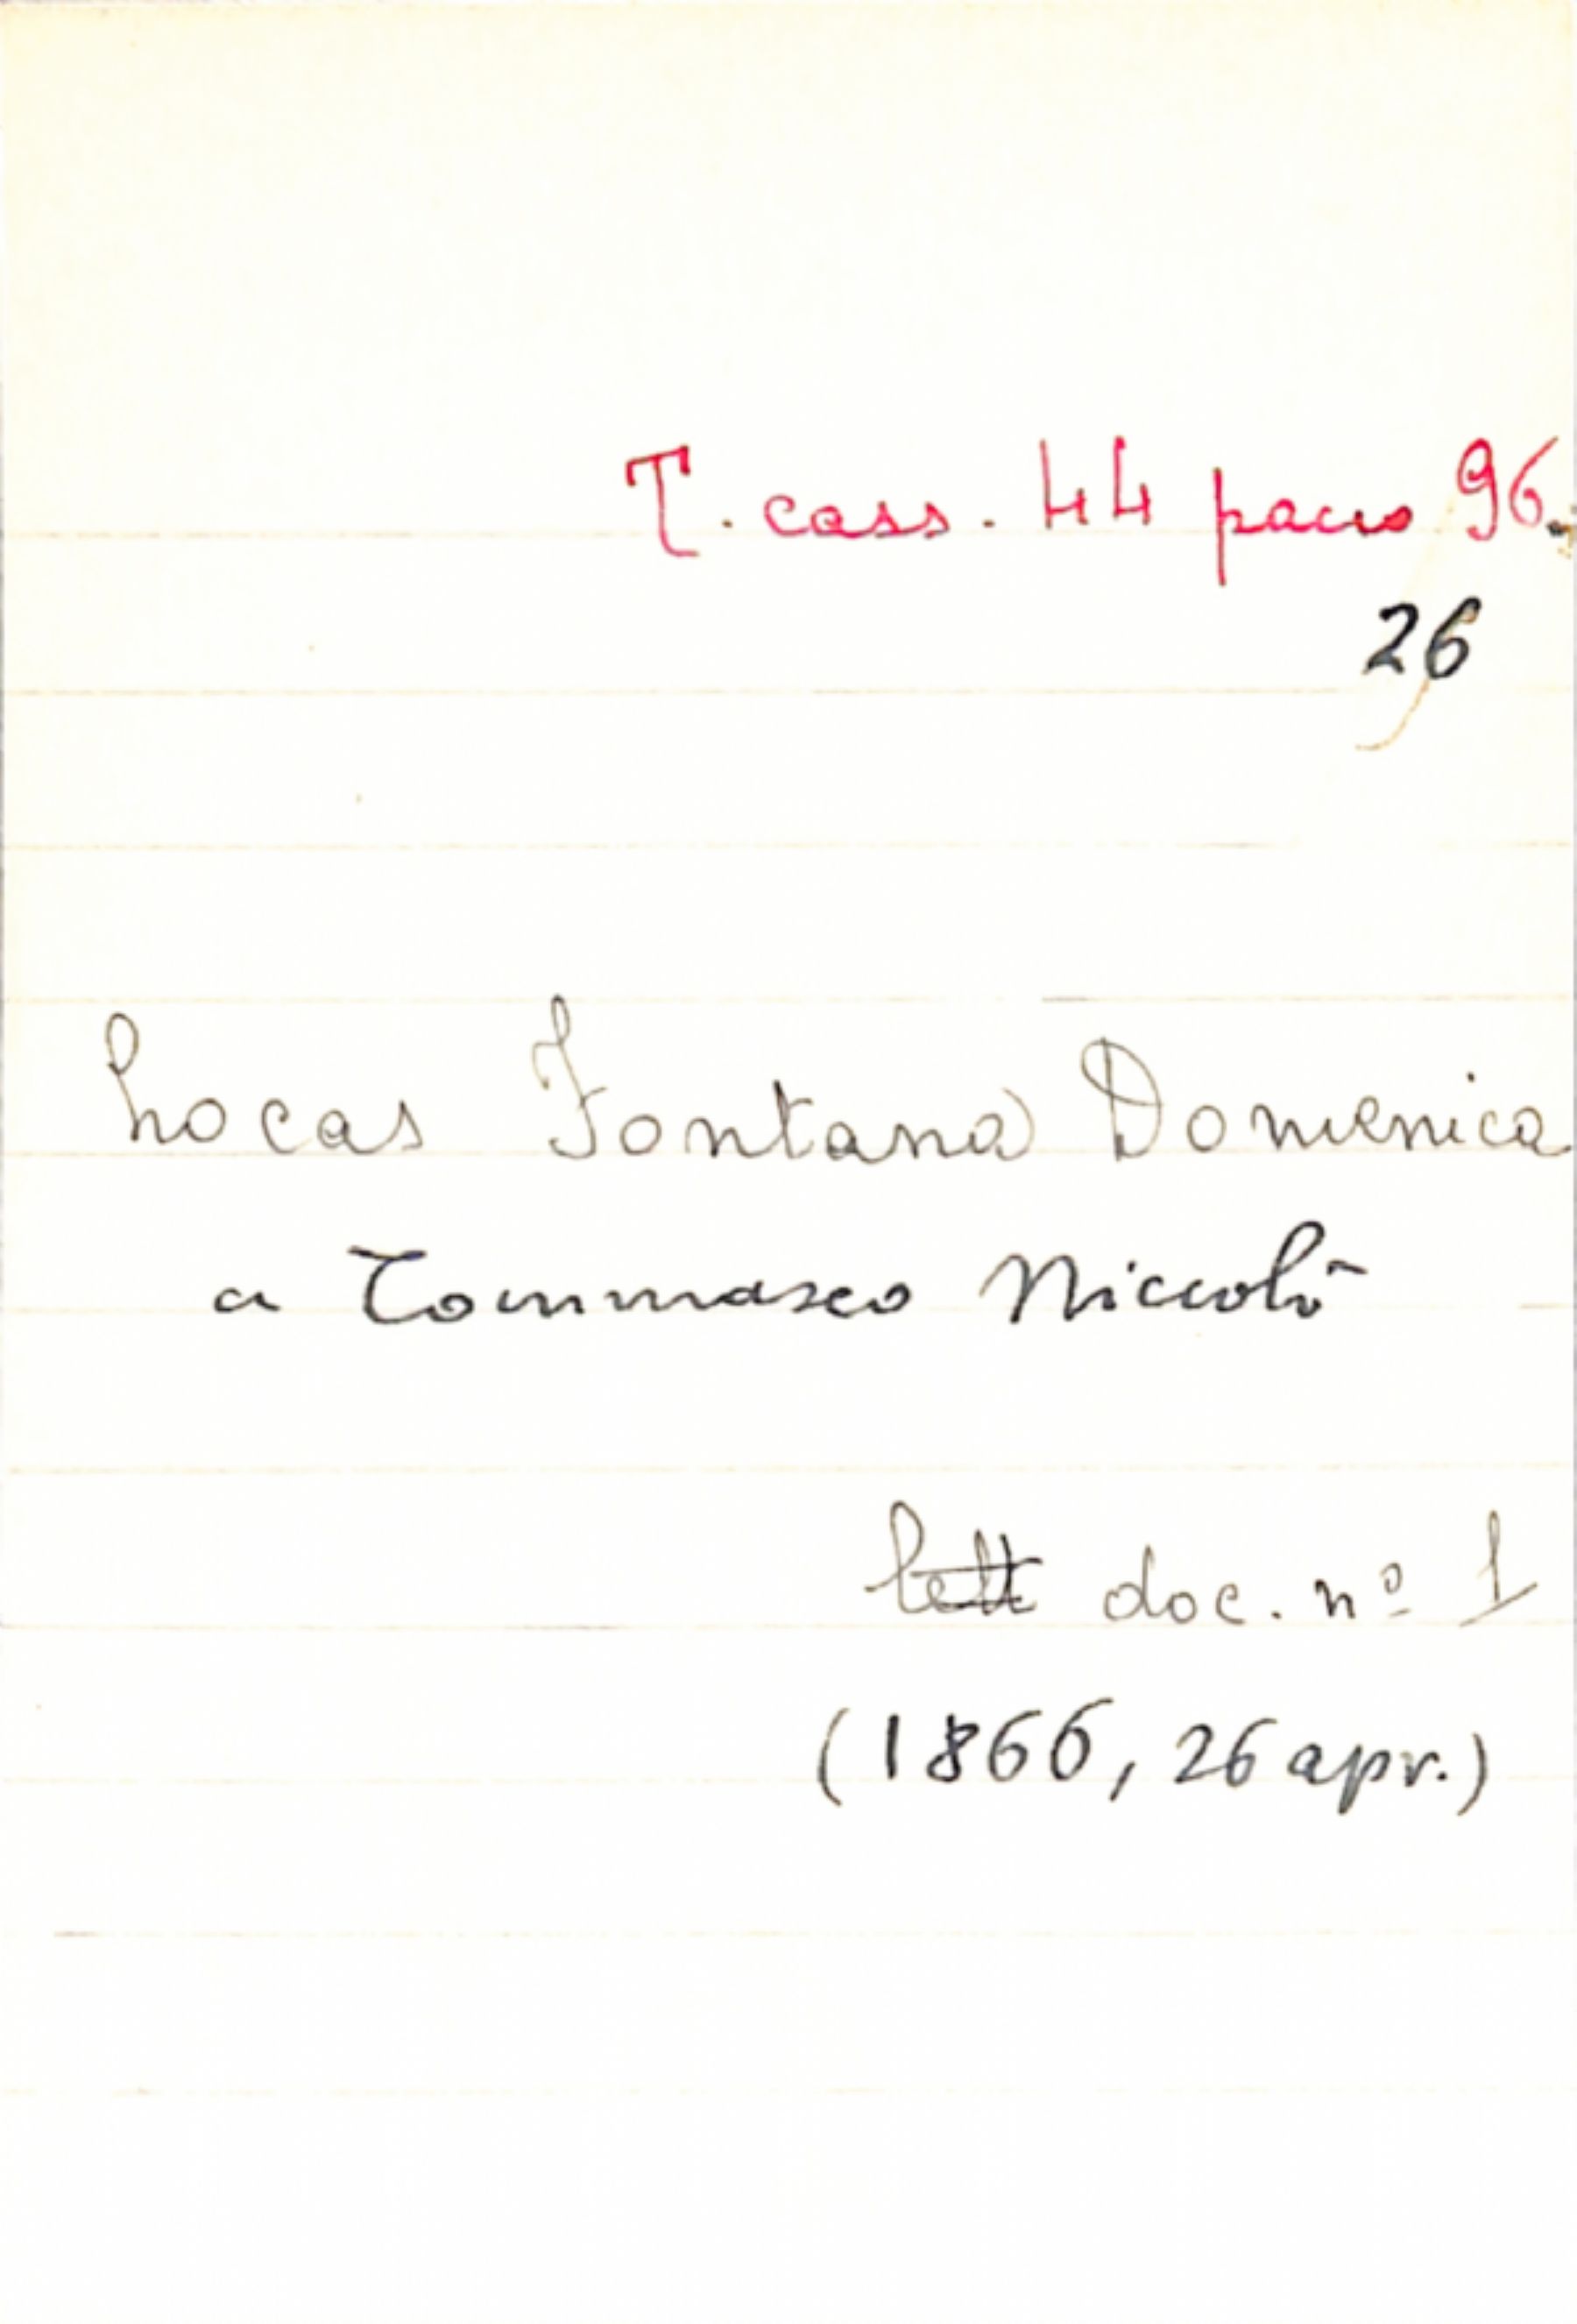 T. cass. 44 pacco 96.
26
Locas Fontana Domenica
a Tommaseo Niccolò
lett doc. nº 1
(1866, 26 apr.)